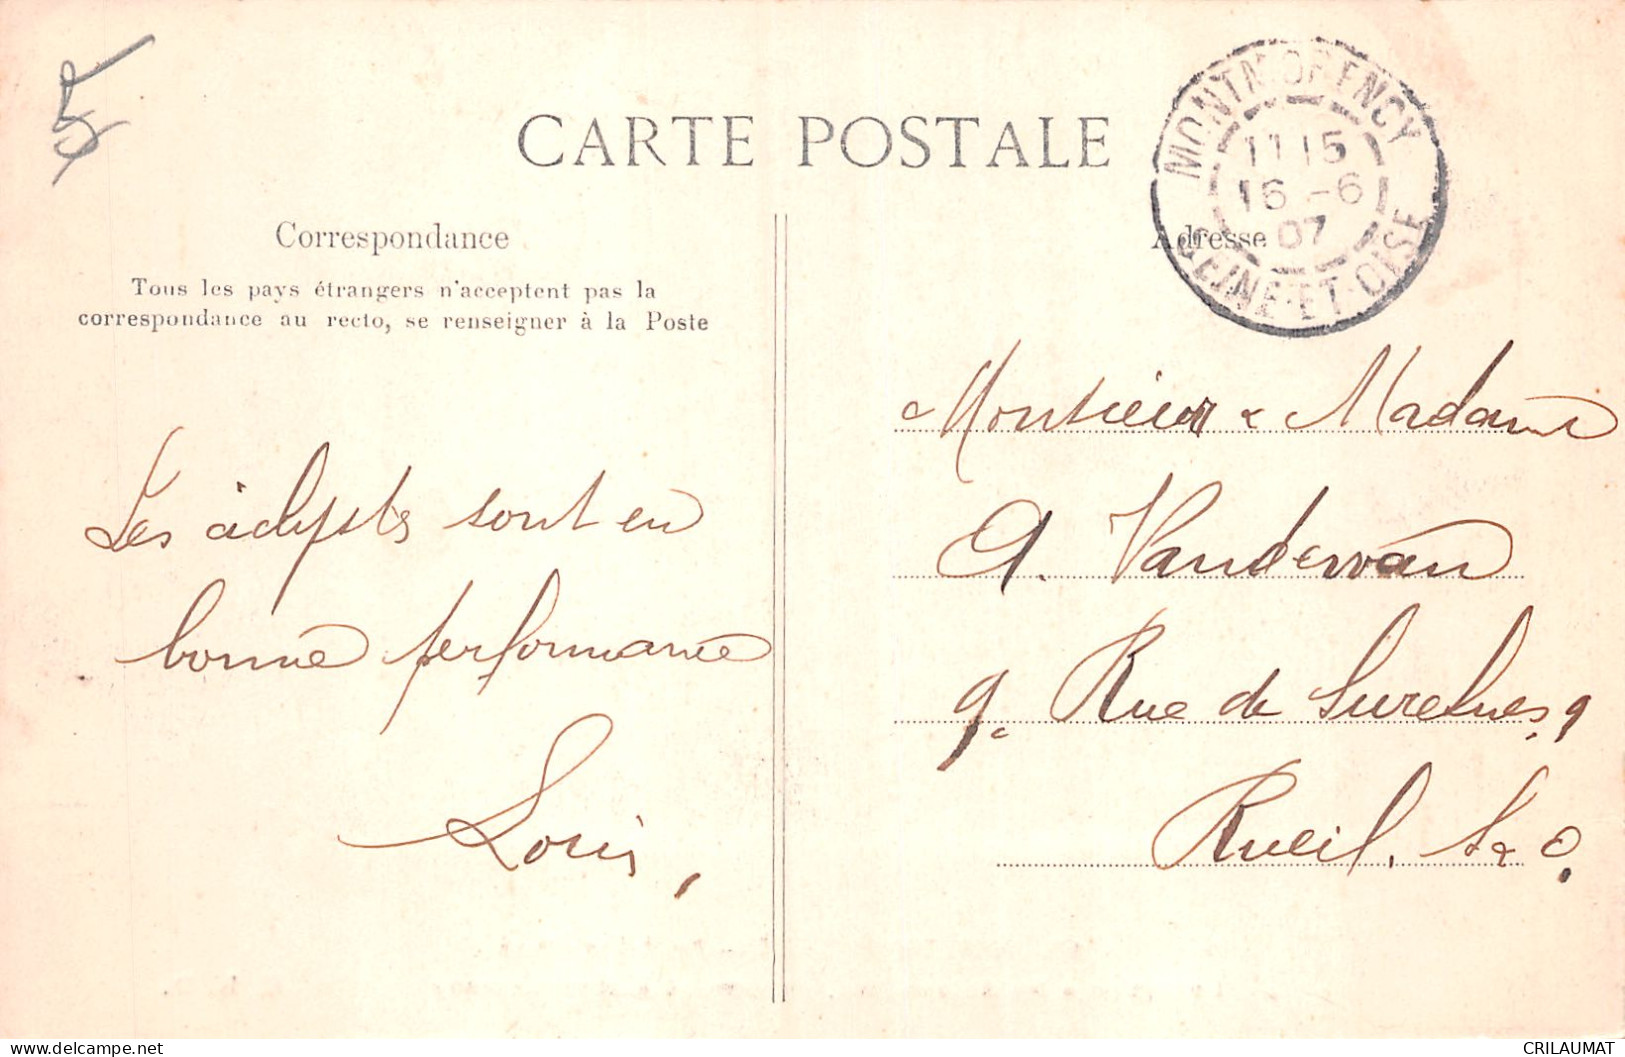 5
CARTE POSTALE
MONTMORENCY
11 15
16 -6
07
SEINE-ET-OISE
Correspondance
Tous les pays étrangers n'acceptent pas la
correspondance au recto, se renseigner à la Poste
Les adeptes sont en
bonne performance
Louis,
Adresse
Monsieur & Madame
A. Vandervan
9. Rue de Suresnes, 9
Rueil. S & O.
CRILAUMAT